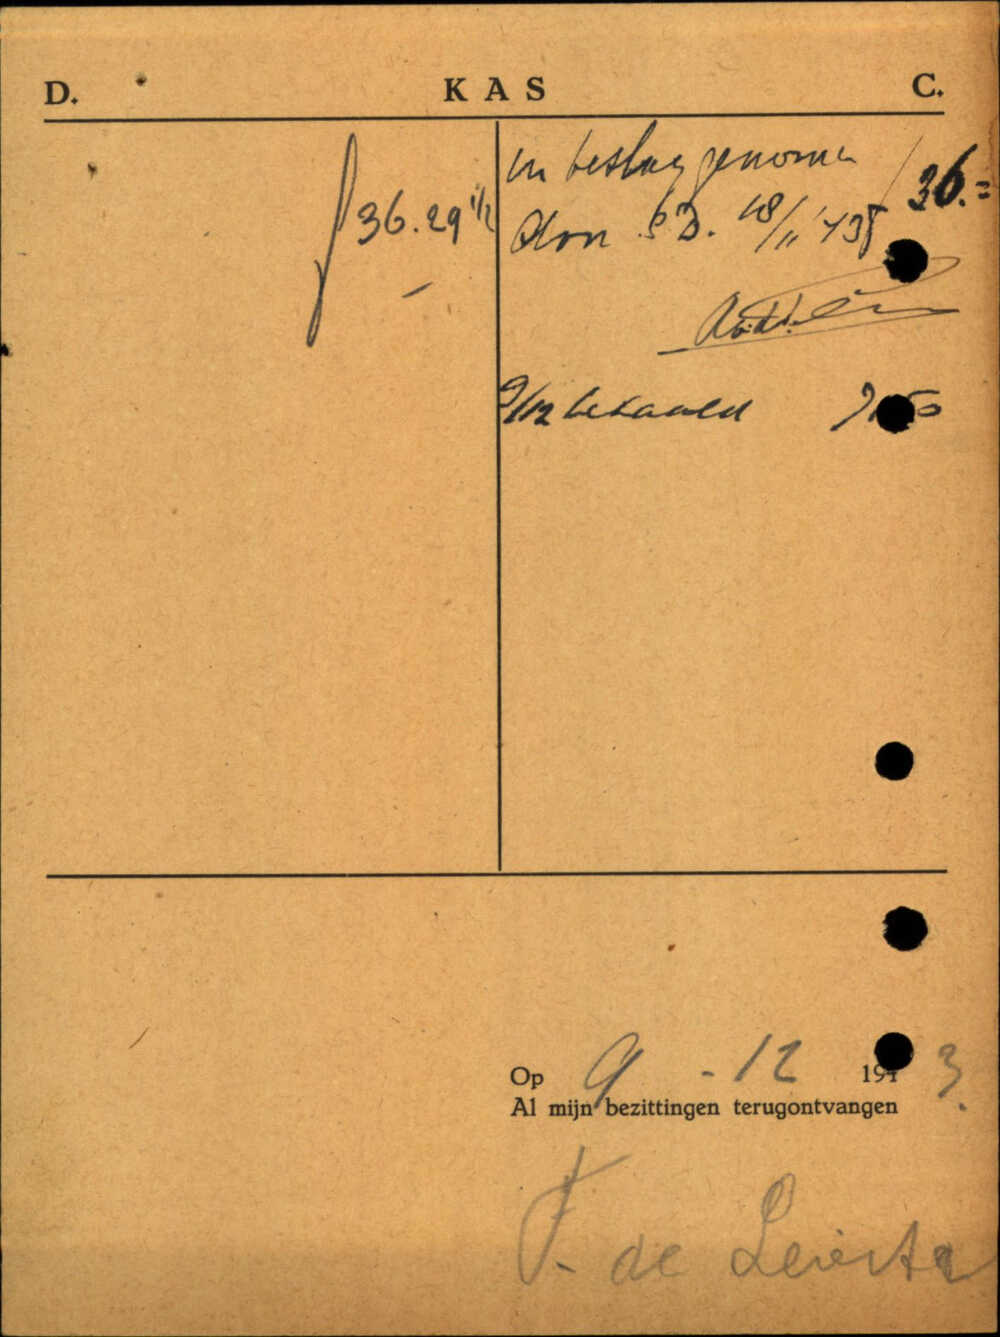 D. KAS C.
f 36.29 1/2
in beslag genomen 36.=
door S.D. 18/11 '43
9/12 betaald
Op 9 - 12 194 3.
Al mijn bezittingen terugontvangen
F. de